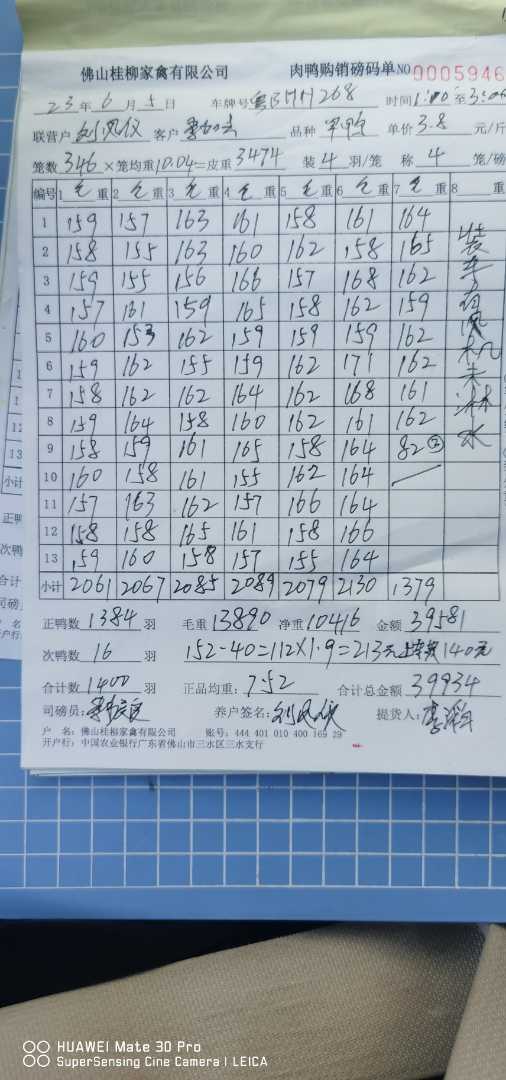 佛山桂柳家禽有限公司 肉鸭购销磅码单NO 0005946
23年6月5日 车牌号 268 时间1:00至3:06
联营户 刘凤仪 客户 品种 单价3.8元/斤
笼数346×笼均重10.04=皮重3474 装4羽/笼 称4笼/磅
编号 1毛重 2毛重 3毛重 4毛重 5毛重 6毛重 7毛重 8 重
1 159 157 163 161 158 161 164
2 158 155 163 160 162 158 165
3 159 155 156 166 157 168 162
4 157 161 159 165 158 162 159
5 160 153 162 159 159 159 162
6 159 162 155 159 162 171 162
7 158 162 162 164 162 168 161
8 159 164 158 160 162 161 162
9 158 159 161 165 158 164 82②
10 160 158 161 155 162 164
11 157 163 162 157 166 164
12 158 158 165 161 158 166
13 159 160 158 157 155 164
小计 2061 2067 2085 2089 2079 2130 1379
装车有风机未淋水
正鸭数1384羽 毛重13890 净重10416 金额39581
次鸭数16羽 152-40=112×1.9=213元 140元
合计数1400羽 正品均重:7.52 合计总金额39934
司磅员: 养户签名:刘凤仪 提货人:
户 名:佛山桂柳家禽有限公司 账号:444 401 010 400 169 29
开户行:中国农业银行广东省佛山市三水区三水支行
13
小计
正鸭
次鸭
合计
司磅
HUAWEI Mate 30 Pro
SuperSensing Cine Camera | LEICA